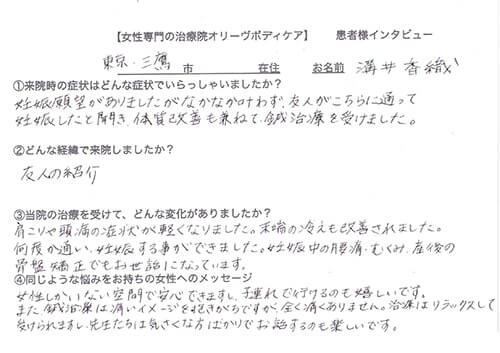 【女性専門の治療院オリーヴボディケア】 患者様インタビュー
東京・三鷹 市 在住 お名前 溝井香織
①来院時の症状はどんな症状でいらっしゃいましたか?
妊娠願望がありましたがなかなか叶わず、友人がこちらに通って
妊娠したと聞き、体質改善も兼ねて、鍼治療を受けました。
②どんな経緯で来院しましたか?
友人の紹介
③当院の治療を受けて、どんな変化がありましたか?
肩こりや頭痛の症状が軽くなりました。末端の冷えも改善されました。
何度か通い、妊娠する事ができました。妊娠中の腰痛・むくみ、産後の
骨盤矯正でもお世話になっています。
④同じような悩みをお持ちの女性へのメッセージ
女性しかいない空間で安心できますし、子連れで行けるのも嬉しいです。
また、鍼治療は痛いイメージを抱きがちですが、全く痛くありません。治療はリラックスして
受けられますし、先生たちは気さくな方ばかりでお話するのも楽しいです。